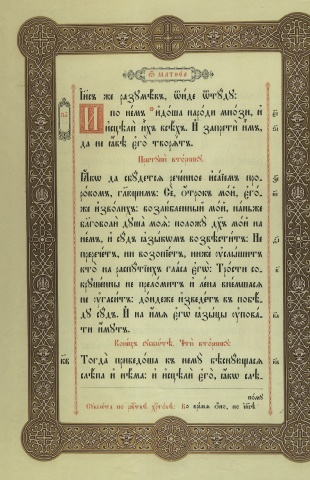 Ѿ МАТѲЕА
І҆и҃съ же разꙋмѣвъ, ѿи́де ѿтꙋ́дꙋ:
И по не́мъ и҆до́ша наро́ди мно́зи, и҆
и҆сцѣлѝ и҆̀хъ всѣ́хъ. И҆ запретѝ и҆̀мъ,
да не ꙗ҆́вѣ є҆го̀ творѧ́тъ.
Престꙋпѝ вто́рникꙋ.
Ꙗ҆́кѡ да сбꙋ́детсѧ рече́нное и҆са́їемъ про-
ро́комъ, глаго́лющимъ: Сѐ, ѻ҆́трокъ мо́й, є҆го́-
же и҆зво́лихъ: возлю́бленный мо́й, на́ньже
благоволѝ дꙋша̀ моѧ̀: положꙋ̀ дх҃ъ мо́й на
не́мъ, и҆ сꙋ́дъ ꙗ҆зы́кѡмъ возвѣсти́тъ: Не
пререче́тъ, ни возопїе́тъ, нижѐ ᲂу҆слы́шитъ
кто̀ на распꙋ́тїихъ гла́са є҆гѡ̀: Тро́сти со-
крꙋше́нны не прело́митъ и҆ ле́на внемша́сѧ
не ᲂу҆гаси́тъ: до́ндеже и҆зведе́тъ въ побѣ́-
дꙋ сꙋ́дъ. И҆ на и҆́мѧ є҆гѡ̀ ꙗ҆зы́цы ᲂу҆пова́-
ти и҆́мꙋтъ.
Коне́цъ сꙋббѡ́тѣ. Чтѝ вто́рникꙋ:
кв҃ Тогда̀ приведо́ша къ немꙋ̀ бѣснꙋ́ющасѧ
слѣ́па и҆ нѣ́ма: и҆ и҆сцѣлѝ є҆го̀, ꙗ҆́кѡ слѣ-
по́мꙋ